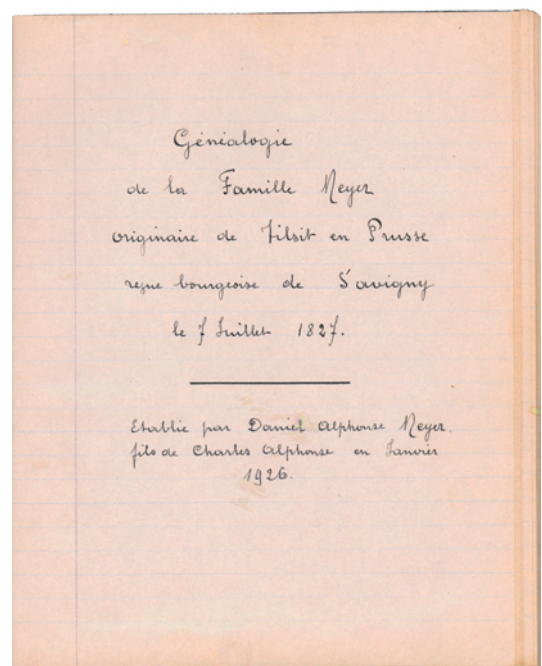 Généalogie
de la Famille Meyer
originaire de Tilsit en Prusse
reçue bourgeoise de Savigny
le 7 Juillet 1827.
Etablie par Daniel Alphonse Meyer.
fils de Charles Alphonse en Janvier
1926.